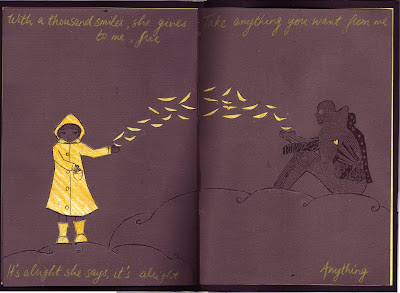 With a thousand smiles, she gives
to me, free
Take anything you want from me
It's alright she says, it's alright
Anything